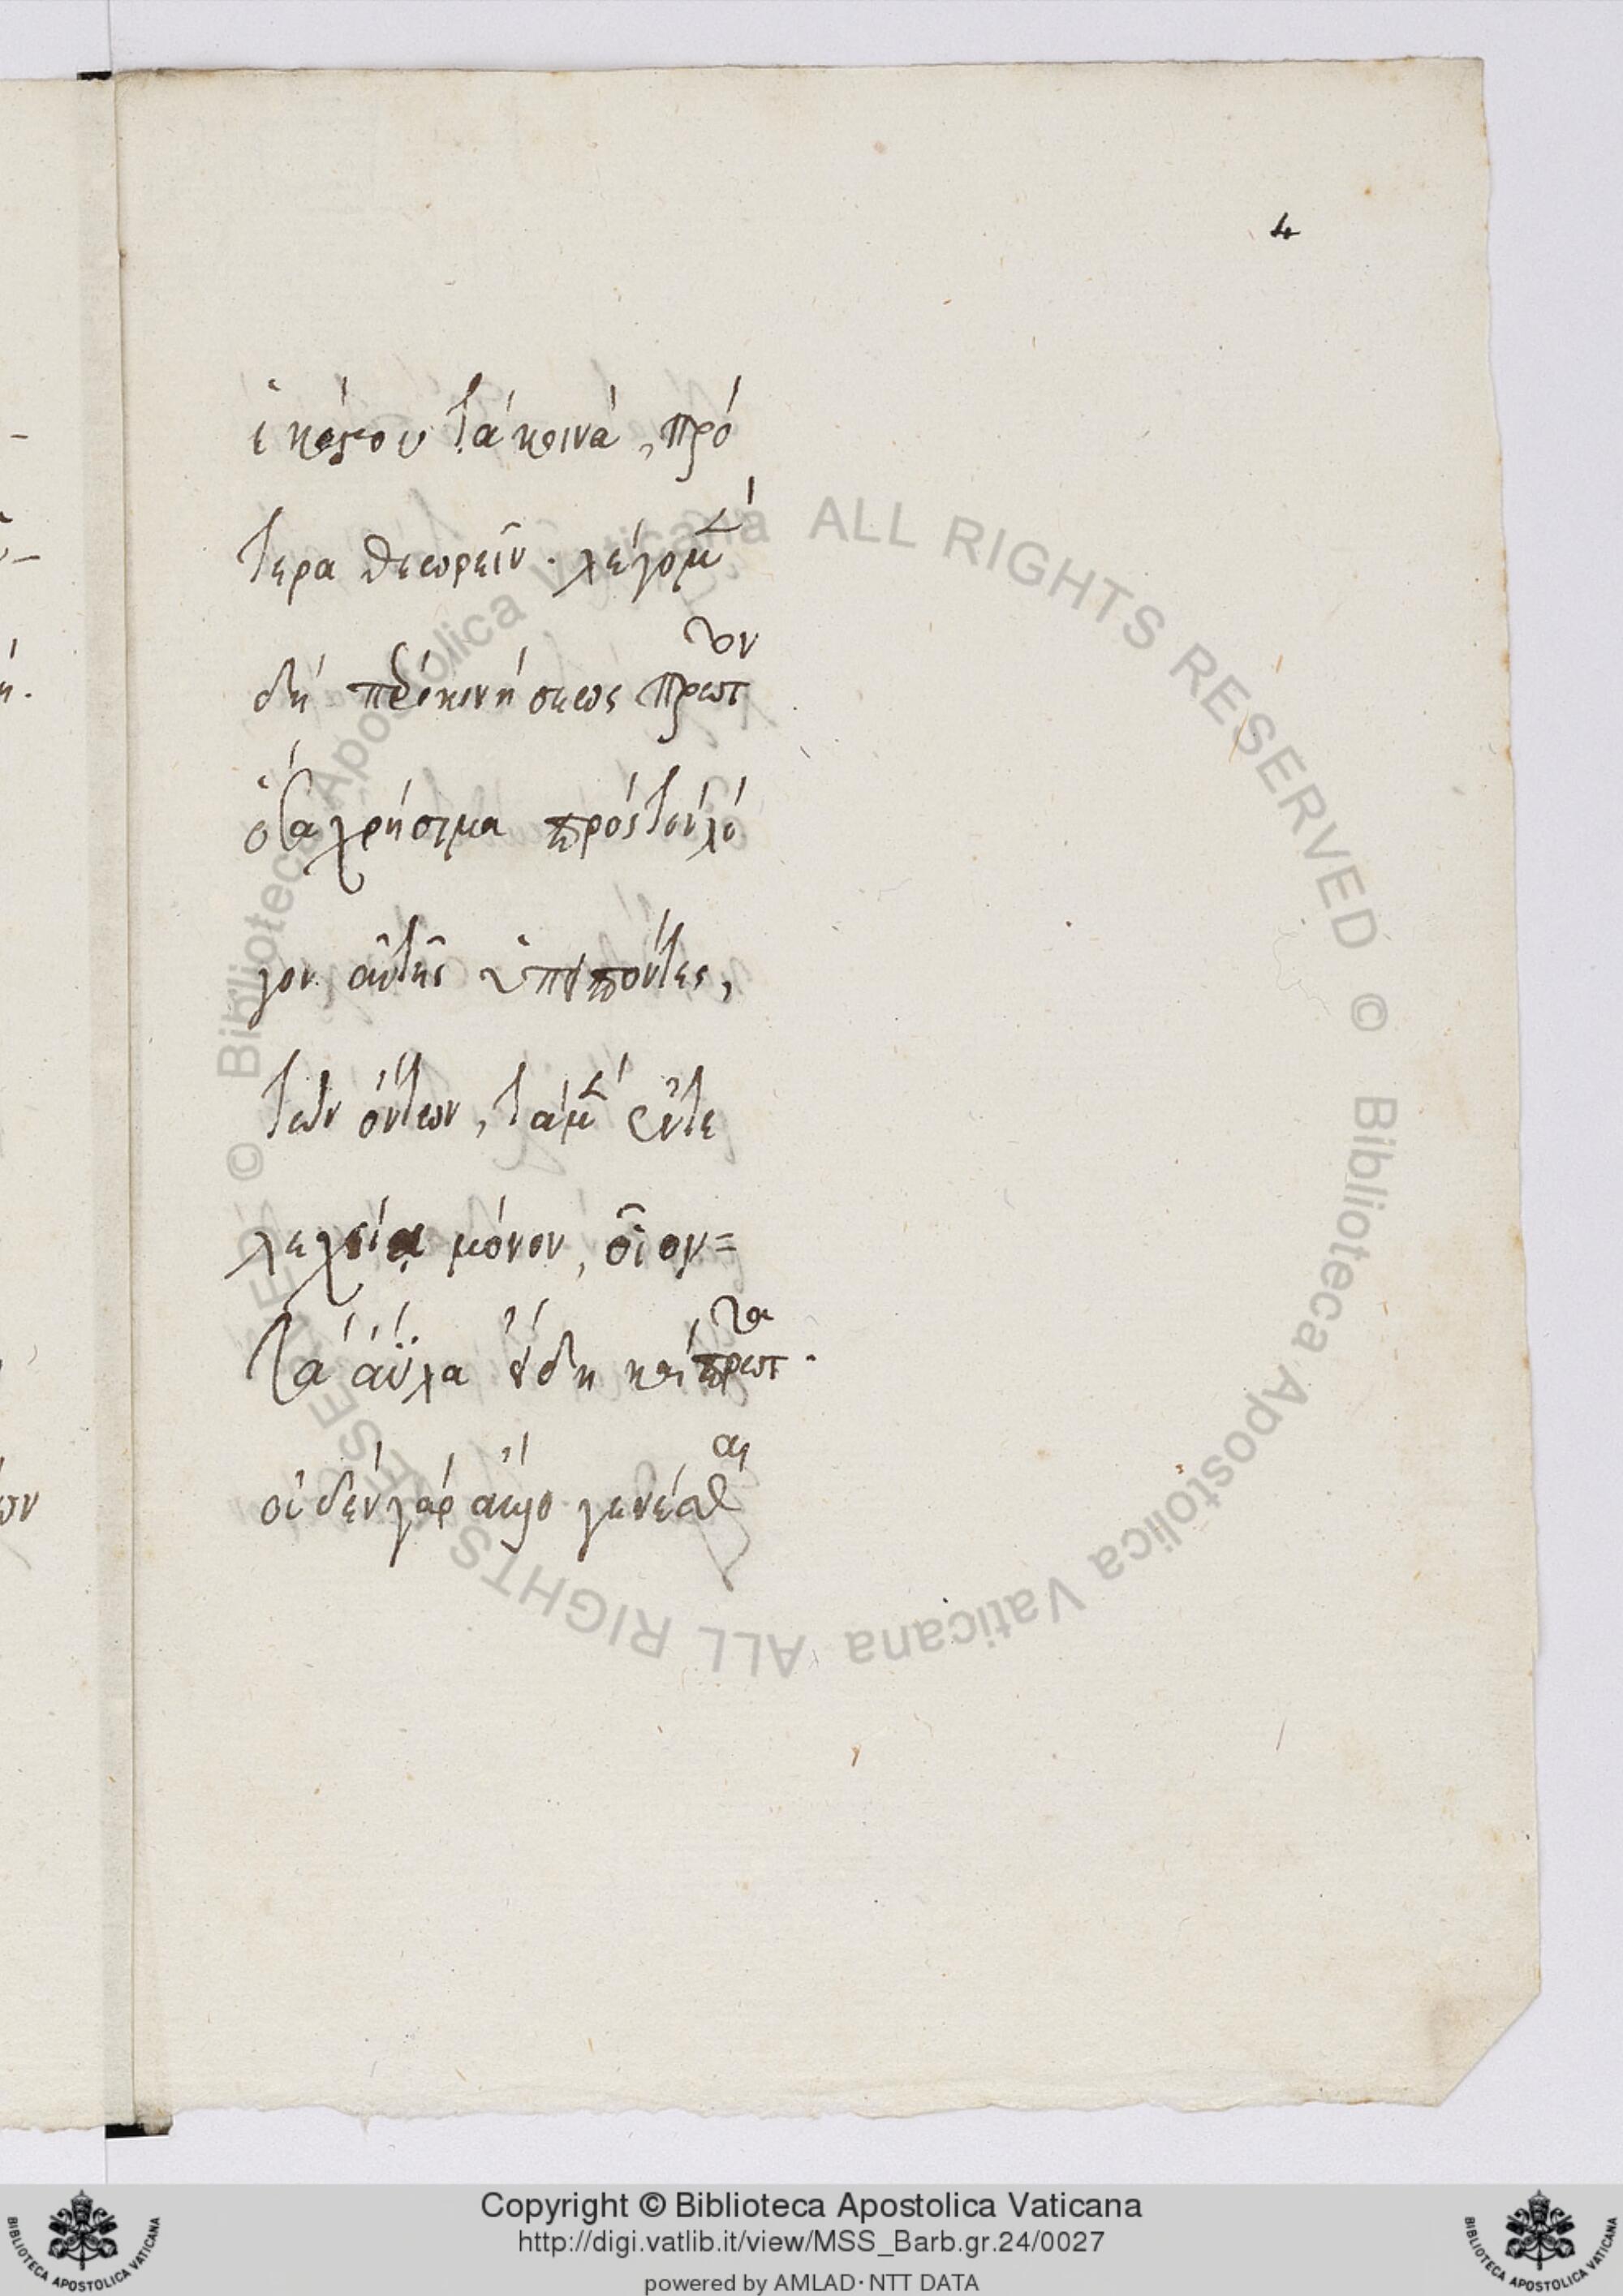 4
ἑκάστου τὰ κοινὰ, πρό
τερα θεωρεῖν. λέγομεν
δὴ περὶ κινήσεως πρῶτον
ὅτα χρήσιμα πρὸς τὸν λό
γον αὐτῆς ὑπειπόντες,
τῶν ὄντων, τὰ μὲν ἐντε
λεχεία μόνον, οἷον=
τὰ ἄϋλα εἴδη καὶ πρῶτα.
οὐδὲν γὰρ ἄλλο γενέσθαι
ALL RIGHTS RESERVED © Biblioteca Apostolica Vaticana ALL RIGHTS RESERVED © Biblioteca Apostolica Vaticana
Copyright © Biblioteca Apostolica Vaticana
http://digi.vatlib.it/view/MSS_Barb.gr.24/0027
powered by AMLAD·NTT DATA
BIBLIOTECA APOSTOLICA VATICANA
BIBLIOTECA APOSTOLICA VATICANA